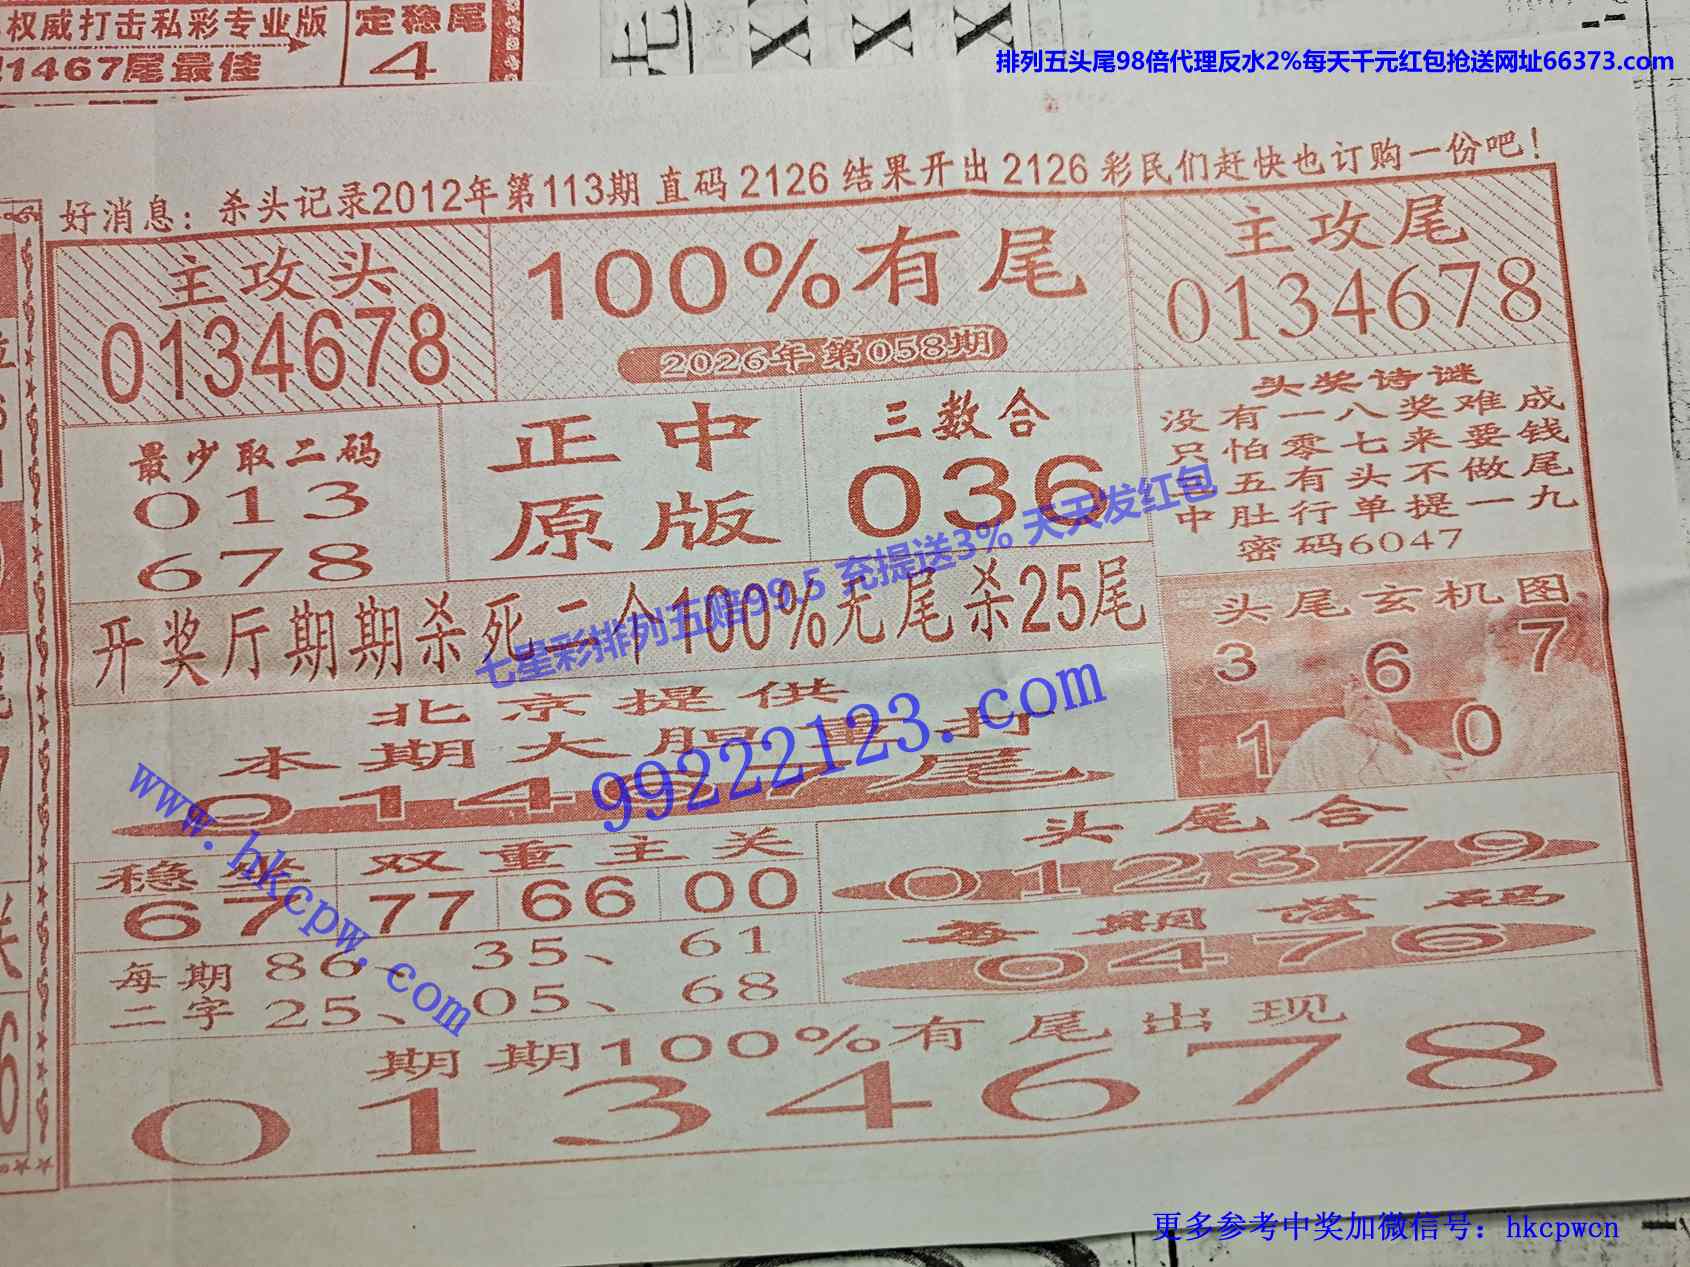 权威打击私彩专业版
1467尾最佳
定稳尾
4
X X X
排列五头尾98倍代理反水2%每天千元红包抢送网址66373.com
好消息：杀头记录2012年第113期 直码 2126 结果开出 2126 彩民们赶快也订购一份吧！
主攻头
0134678
100%有尾
2026年第058期
主攻尾
0134678
最少取二码
013
678
正中
原版
三数合
036
头奖诗谜
没有一八奖难成
只怕零七来要钱
五有头不做尾
中肚行单提一九
密码6047
开奖厅期期杀死二个100%无尾杀25尾
七星彩排列五赔99.5 充提送3% 天天发红包
头尾玄机图
3 6 7
1 0
北京提供
本期大胆重打
01467尾
99222123.com
www.hkcpw.com
稳坐
67
双重主关
77 66 00
头尾合
012379
每期
二字
86、35、61
25、05、68
每期落码
0476
期期100%有尾出现
0134678
更多参考中奖加微信号：hkcpwcn